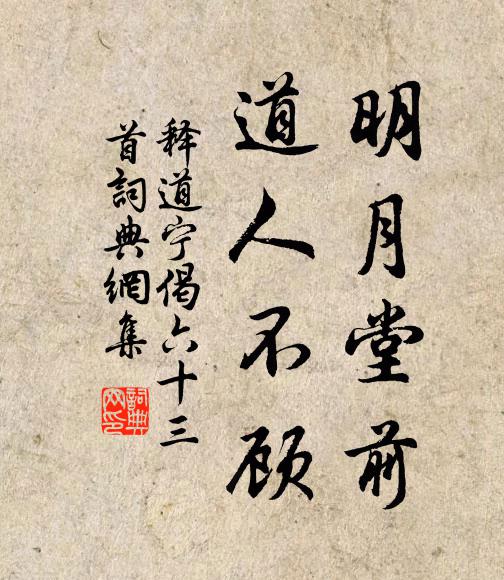 明月堂前
道人不顾
释道宁偈六十三
首詞典網集
詞典
网印